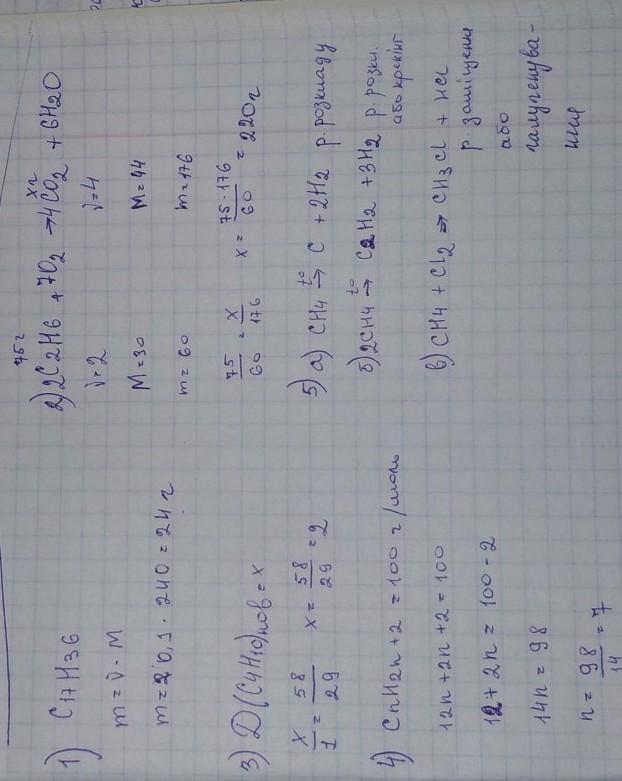 1) C17H36
m = ν · M
m = 0,1 · 240 = 24 г
3) Д(C4H10)пов = x
x/1 = 58/29 x = 58/29 = 2
4) CnH2n+2 = 100 г/моль
12n + 2n + 2 = 100
12 + 2n = 100 - 2
14n = 98
n = 98/14 = 7
75г xг
2) 2C2H6 + 7O2 → 4CO2 + 6H2O
ν = 2 ν = 4
M = 30 M = 44
m = 60 m = 176
75/60 = x/176 x = 75 · 176/60 = 220г
5) а) CH4 t° → C + 2H2 р. розкладу
б) 2CH4 t° → C2H2 + 3H2 р. розкл.
або крекінг
в) CH4 + Cl2 → CH3Cl + HCl
р. заміщення
або
галугенува-
ння